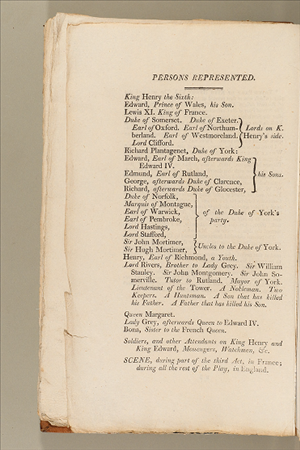 PERSONS REPRESENTED.
King Henry the Sixth:
Edward, Prince of Wales, his Son.
Lewis XI. King of France.
Duke of Somerset. Duke of Exeter.
Earl of Oxford. Earl of Northum- Lords on K.
berland. Earl of Westmoreland. Henry's side.
Lord Clifford.
Richard Plantagenet, Duke of York:
Edward, Earl of March, afterwards King
Edward IV.
Edmund, Earl of Rutland, his Sons.
George, afterwards Duke of Clarence,
Richard, afterwards Duke of Glocester,
Duke of Norfolk,
Marquis of Montague,
Earl of Warwick, of the Duke of York's
Earl of Pembroke, party.
Lord Hastings,
Lord Stafford,
Sir John Mortimer, Uncles to the Duke of York.
Sir Hugh Mortimer,
Henry, Earl of Richmond, a Youth.
Lord Rivers, Brother to Lady Grey. Sir William
Stanley. Sir John Montgomery. Sir John So-
merville. Tutor to Rutland. Mayor of York.
Lieutenant of the Tower. A Nobleman. Two
Keepers. A Huntsman. A Son that has killed
his Father. A Father that has killed his Son.
Queen Margaret.
Lady Grey, afterwards Queen to Edward IV.
Bona, Sister to the French Queen.
Soldiers, and other Attendants on King Henry and
King Edward, Messengers, Watchmen, &c.
SCENE, during part of the third Act, in France;
during all the rest of the Play, in England.